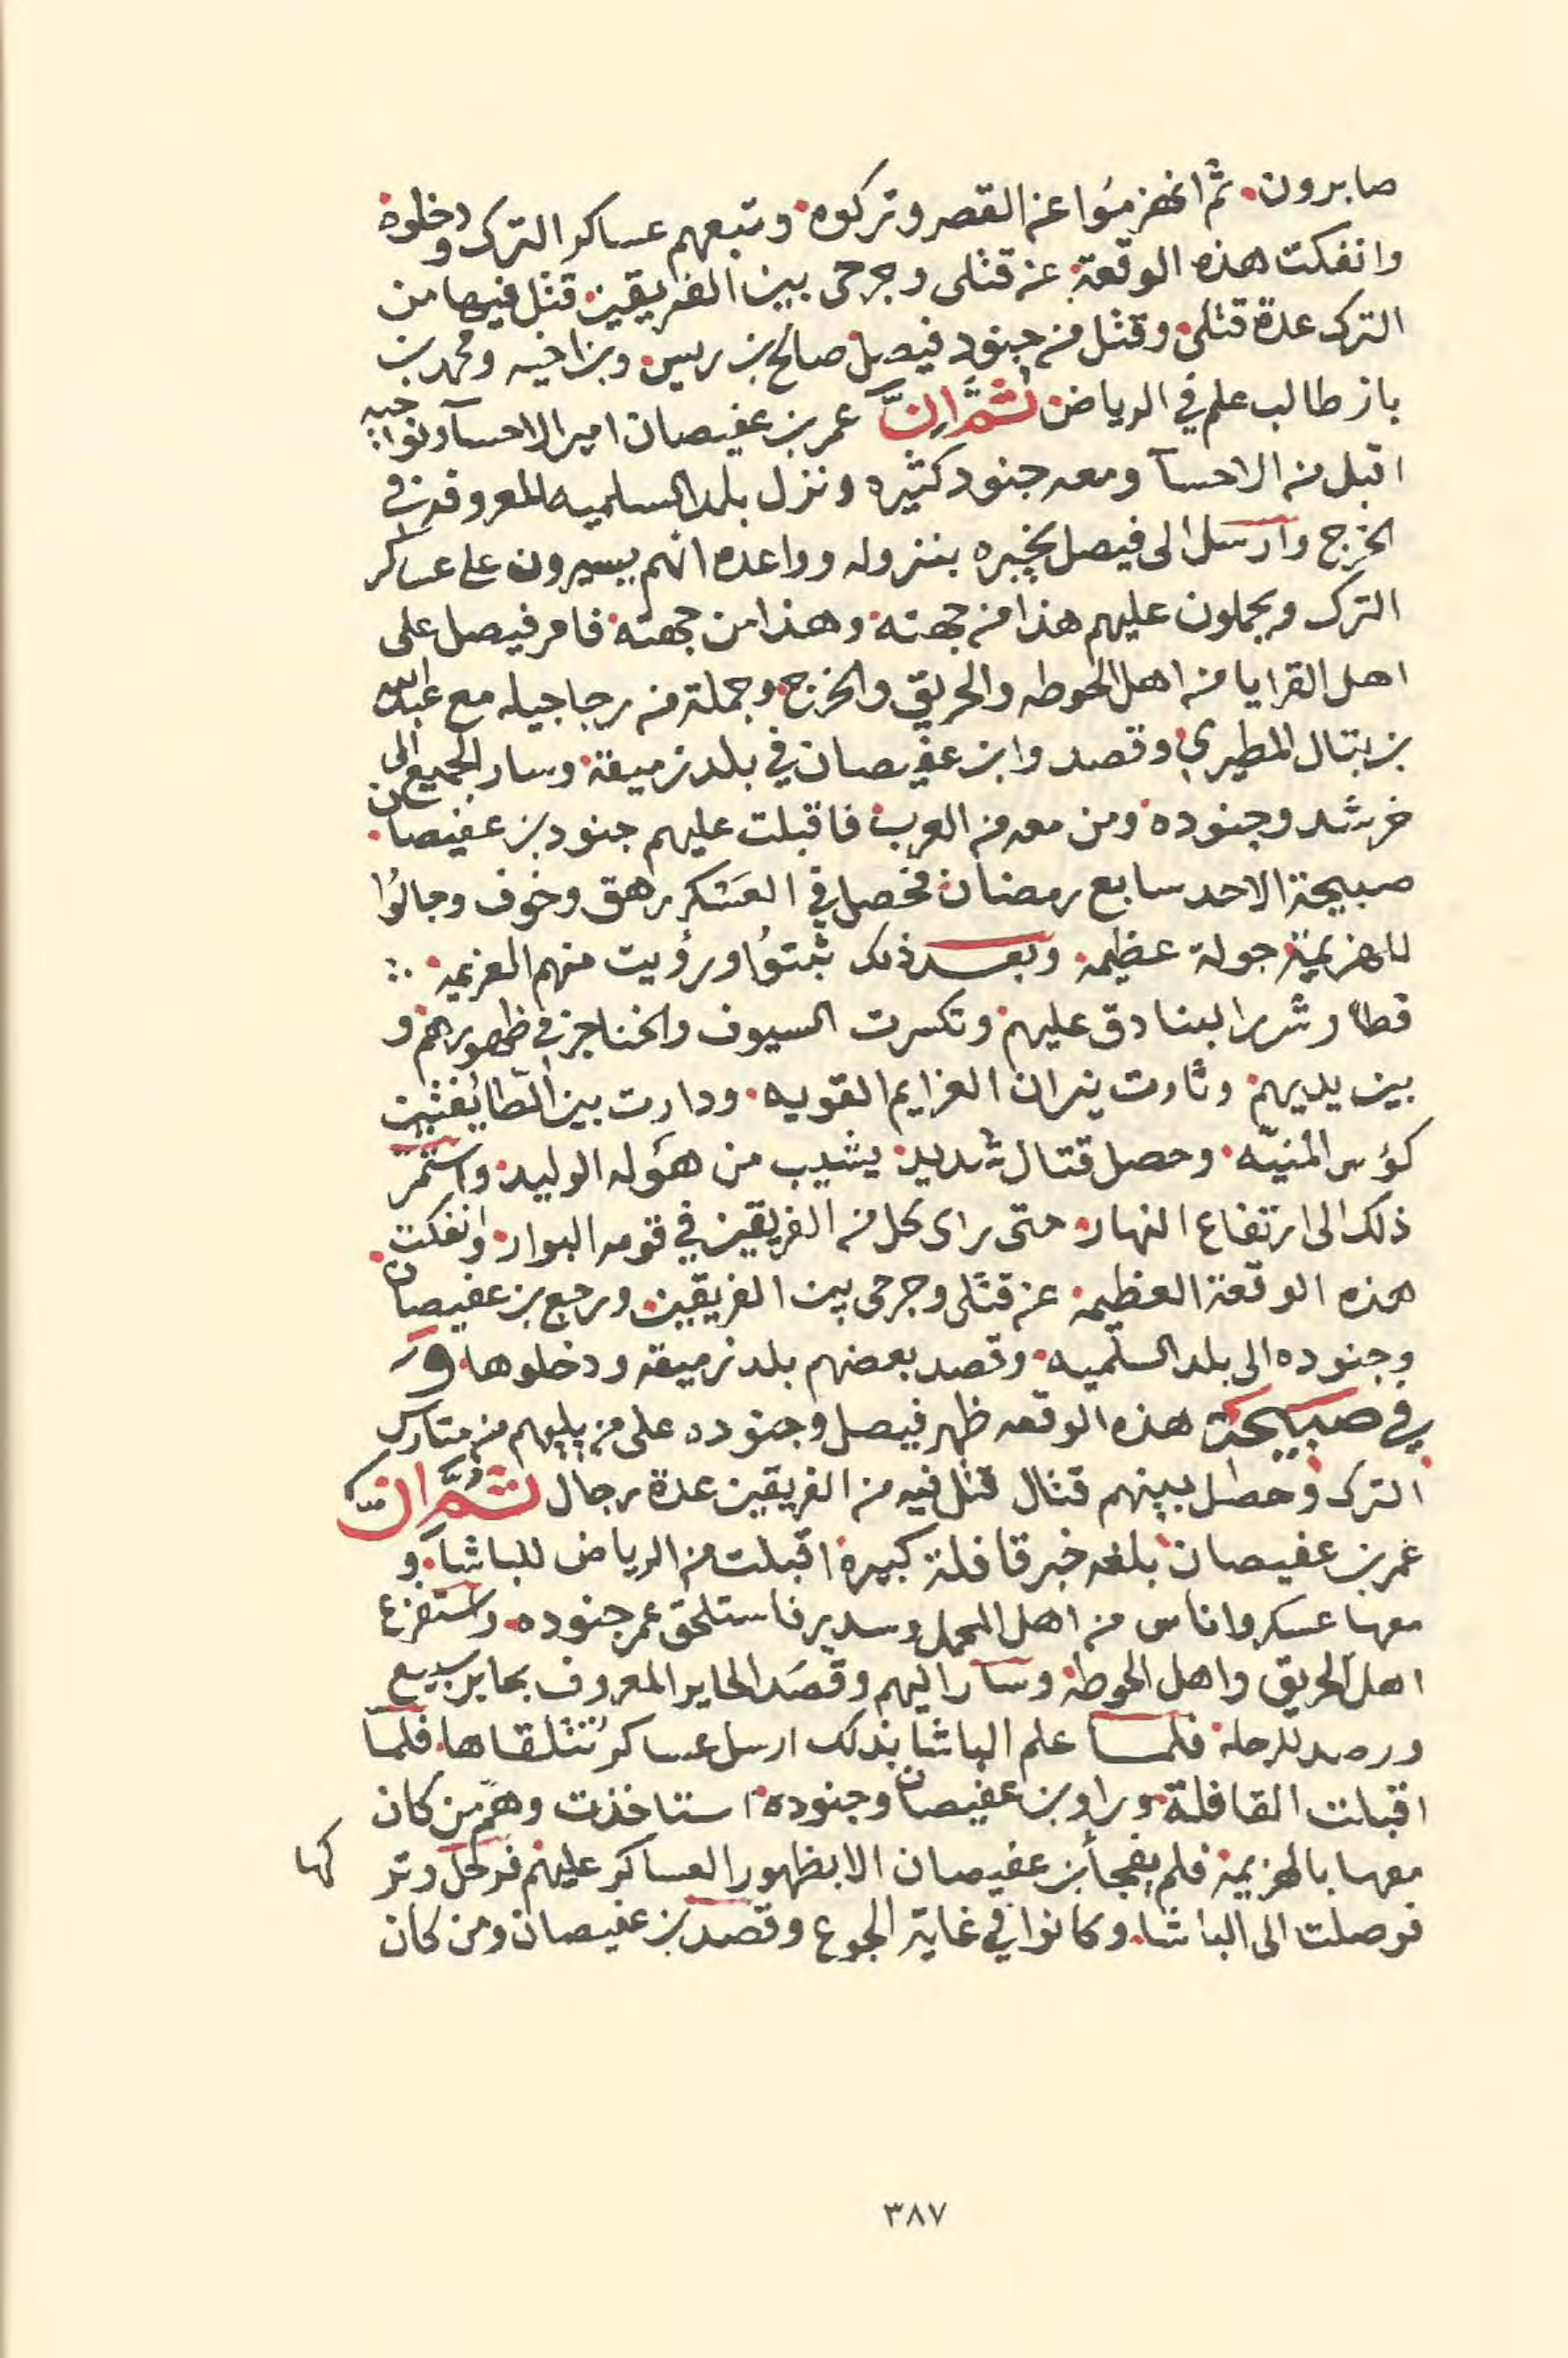 صابرون. ثم انهزموا عن القصر وتركوه. وتبعهم عساكر الترك ودخلوه
وانفكت هذه الوقعة عن قتلى وجرحى بين الفريقين. قتل فيها من
الترك عدة قتلى. وقتل من جنود فيصل صالح بن ريس. وبن اخيه ومحمد بن
باز طالب علم في الرياض ثم ان عمر بن عفيصان امير الاحسآ ونواحيه
اقبل من الاحسآ ومعه جنود كثيره ونزل بلد السلميه المعروفه في
الخرج وارسل الى فيصل يخبره بنزوله وواعده انهم يسيرون على عساكر
الترك ويحملون عليهم هذا من جهته. وهذا من جهته. فامر فيصل على
اهل القرايا من اهل الحوطه والحريق والخرج. وجملة من رجاجيله مع عبدالله
بن بتال المطيري. وقصدوا بن عفيصان في بلد زميقة. وسار الجميع الى
خرشد وجنوده. ومن معه من العرب. فاقبلت عليهم جنود بن عفيصان.
صبيحة الاحد سابع رمضان. فحصل في العسكر رهق وخوف وجالوا
للهزيمة جولة عظيمه. وبعد ذلك ثبتوا ورؤيت منهم العزيمه. ؞
بين يديهم. وثارت نيران العزايم القويه. ودارت بين الطائفتين
كؤس المنيّه. وحصل قتال شديد. يشيب من هؤله الوليد. واستمر
ذلك الى ارتفاع النهار. حتى راى كل من الفريقين في قومه البوار. وانفكت.
هذه الوقعة العظيمه. عن قتلى وجرحى بين الفريقين. ورجع بن عفيصان
وجنوده الى بلد السلميه. وقصد بعضهم بلد زميقه ودخلوها. و
في صبيحة هذه الوقعه ظهر فيصل وجنوده على من يليهم من متارس
الترك وحصل بينهم قتال قتل فيه من الفريقين عدة رجال ثم ان
عمر بن عفيصان بلغه خبر قافلة كبيرة اقبلت من الرياض للباشا. و
معها عسكر واناس من اهل المحمل وسدير فاستلحق عمر جنوده. واستفزع
اهل الحريق واهل الحوطة وسار اليهم وقصد الحاير المعروف بحاير سبيع
ورصد للرحلة. فلما علم الباشا بذلك ارسل عساكر تتلقاها. فلما
اقبلت القافلة وراو بن عفيصان وجنوده. استاخذت وهمّ من كان
معها بالهزيمة. فلم يفجأ بن عفيصان الا بظهور العساكر عليهم فرحل وتر كها
فوصلت الى الباشا. وكانوا في غاية الجوع وقصد بن عفيصان ومن كان
٣٨٧